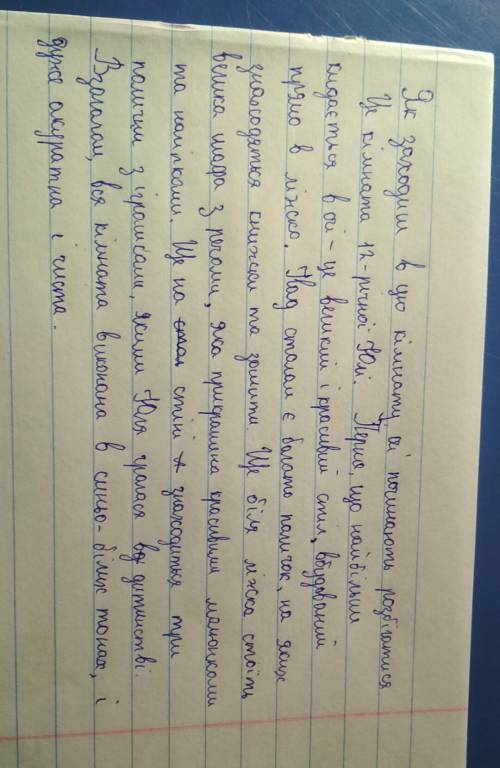 Як заходиш в цю кімнату, очі починають розбігатися.
Це кімната 12-річної Юлі. Перше, що найбільш
кидається в очі - це великий і красивий стіл, вбудований
прямо в ліжко. Над столом є багато поличок, на яких
знаходяться книжки та зошити. Ще біля ліжка стоїть
велика шафа з речами, яка прикрашена красивими малюнками
та наліпками. Ще на стіні знаходиться три
полички з іграшками, якими Юля гралася в дитинстві.
Взагалом, вся кімната виконана в синьо-білих тонах, і
дуже акуратна і чиста.